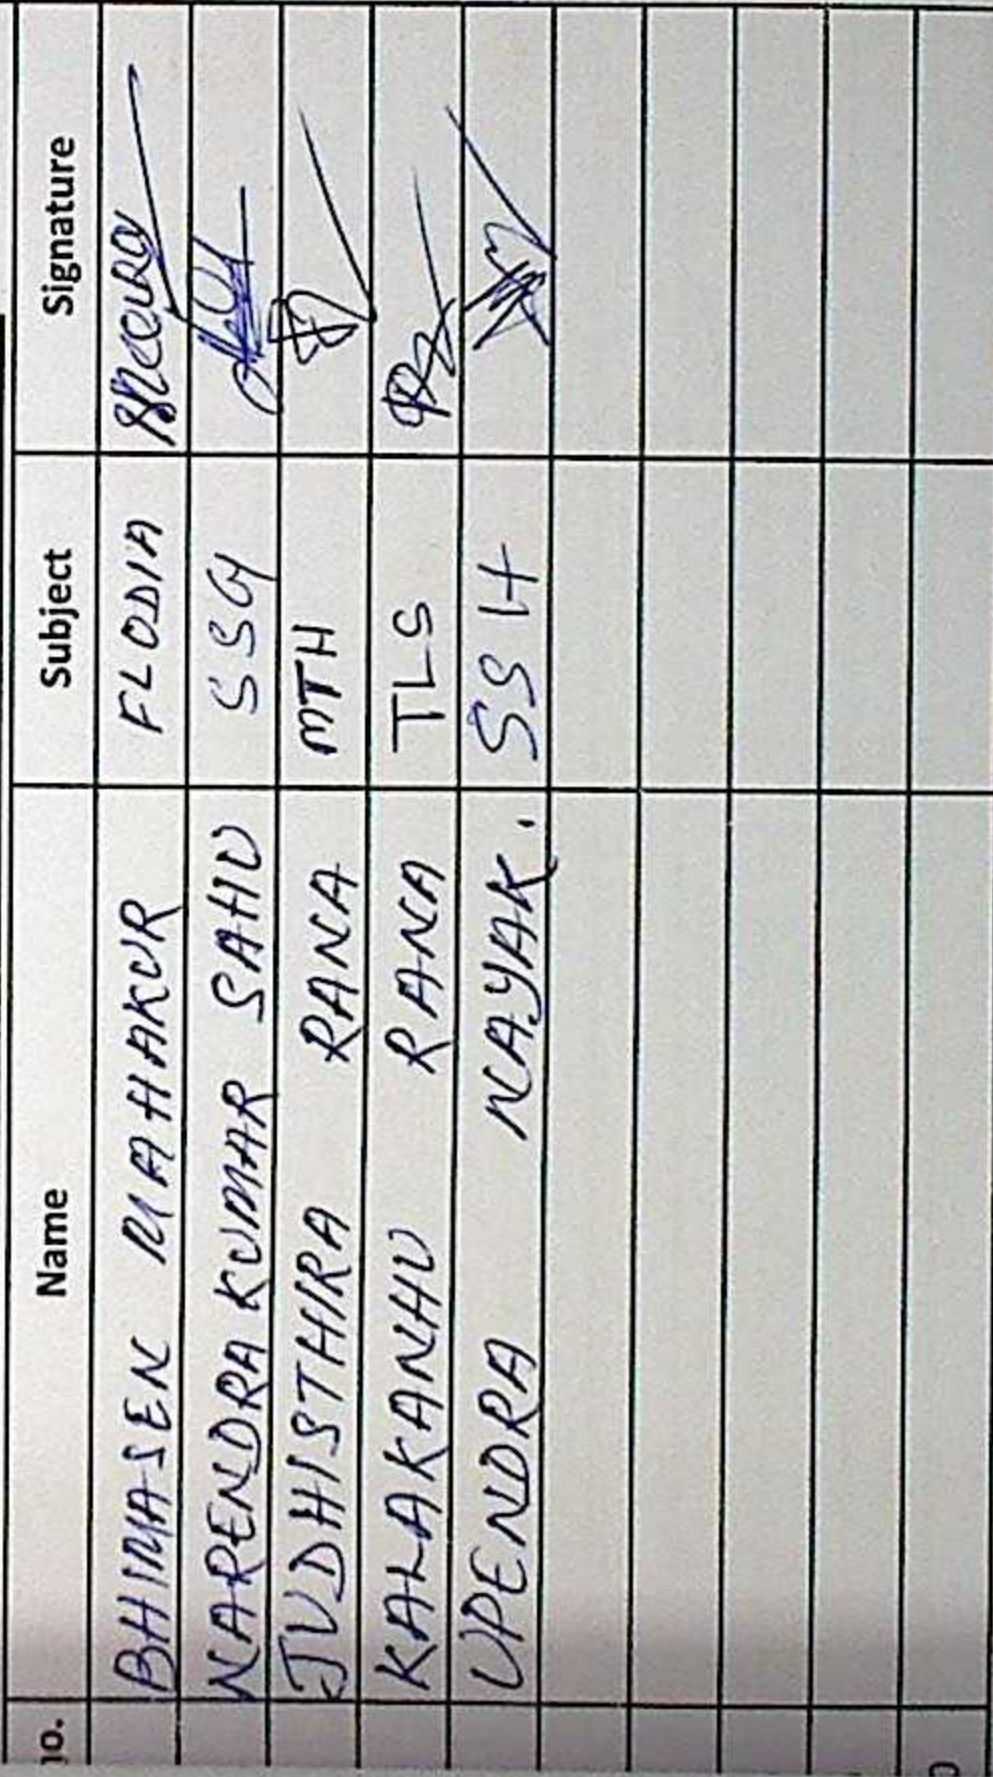 no. Name Subject Signature
BHIMASEN MAHAKUR FLODIA
NARENDRA KUMAR SAHU SSG
JUDHISTHIRA RANA MTH
KALAKANHU RANA TLS
UPENDRA NAYAK. SSH